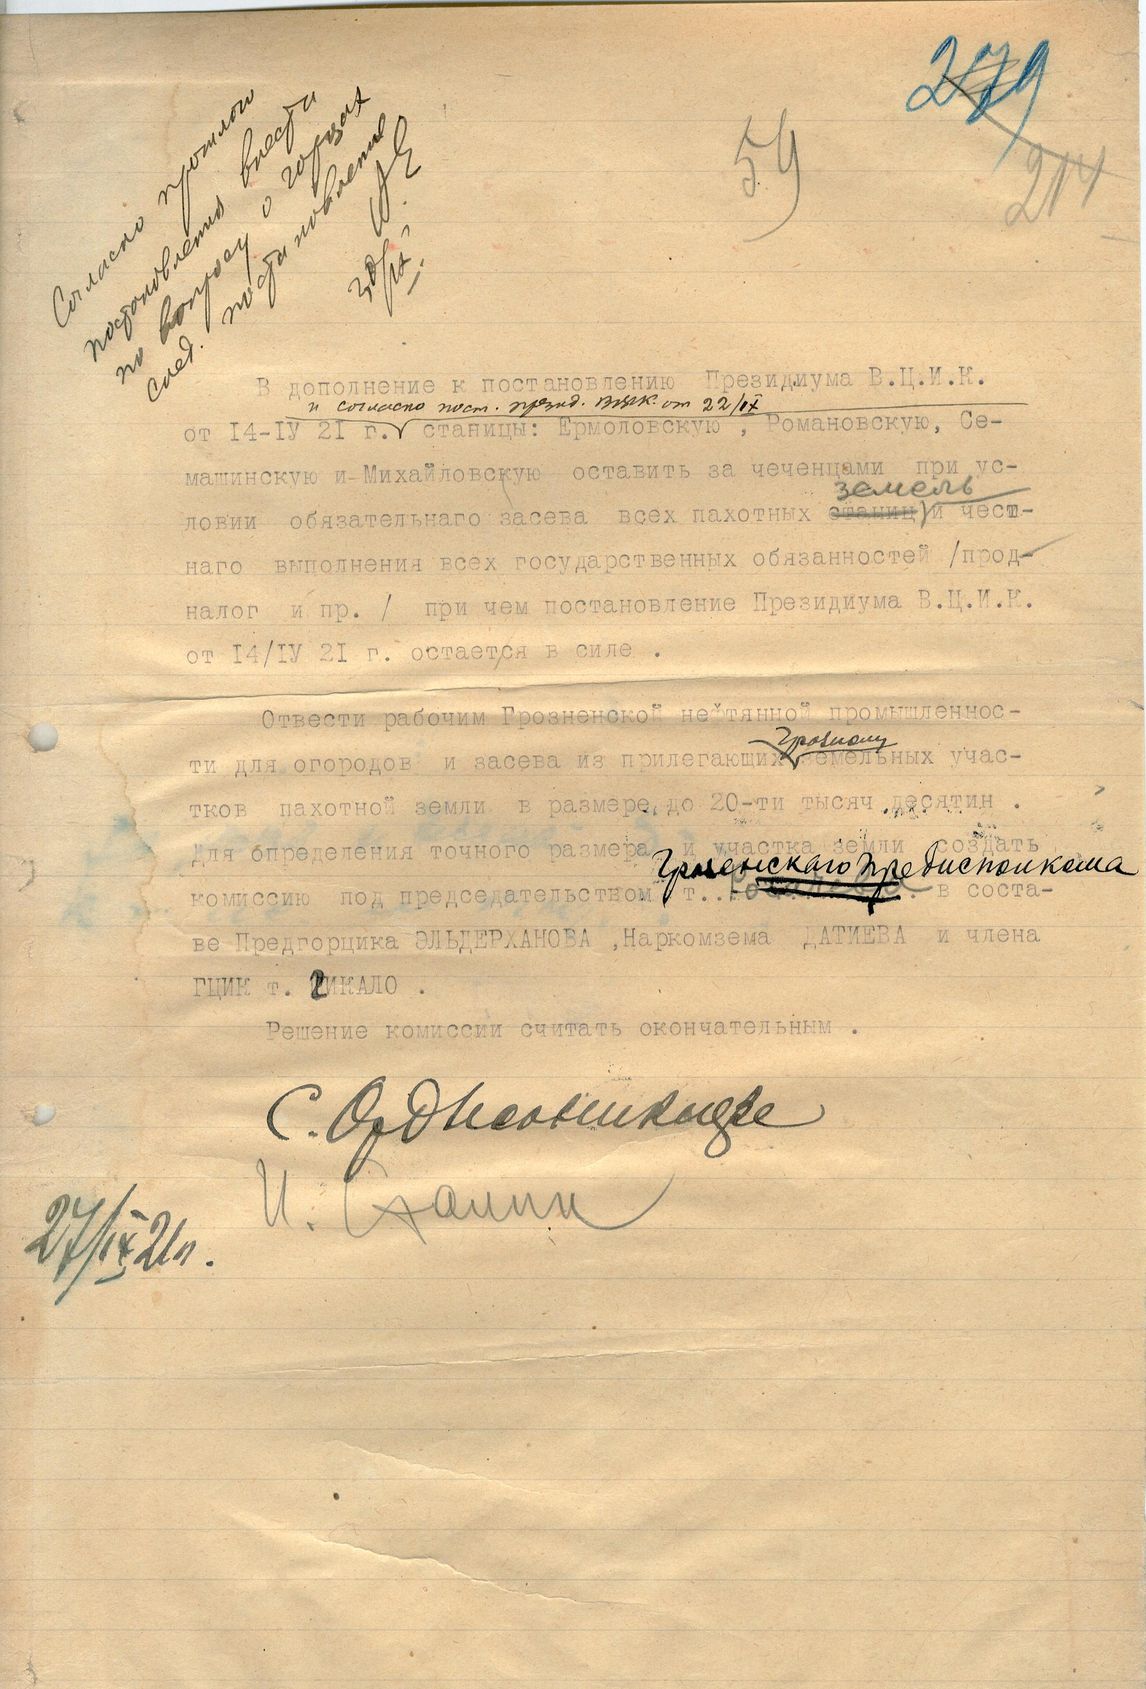 279
59
214
Согласно прошлого
постановления внести
по вопросу о горцах
след. постановление
В дополнение к постановлению Президиума В.Ц.И.К.
и согласно пост. през. ВЦИК. от 22/IX
от I4-IУ 2I г. станицы: Ермоловскую , Романовскую, Се-
машинскую и Михайловскую оставить за чеченцами при ус-
земель
ловии обязательнаго засева всех пахотных станиц и чест-
наго выполнения всех государственных обязанностей /прод-
налог и пр. / при чем постановление Президиума В.Ц.И.К.
от I4/IУ 2I г. остается в силе .
Отвести рабочим Грозненской нефтянной промышленнос-
Грозному
ти для огородов и засева из прилегающих земельных учас-
тков пахотной земли в размере до 20-ти тысяч десятин .
Для определения точного размера и участка земли создать
Грозненскаго Предисполкома
комиссию под председательством т. в соста-
ве Предгорцика ЭЛЬДЕРХАНОВА ,Наркомзема ДАТИЕВА и члена
ГЦИК т. ЗИКАЛО .
Решение комиссии считать окончательным .
С. Орджоникидзе
И. Сталин
27/IX 21г.